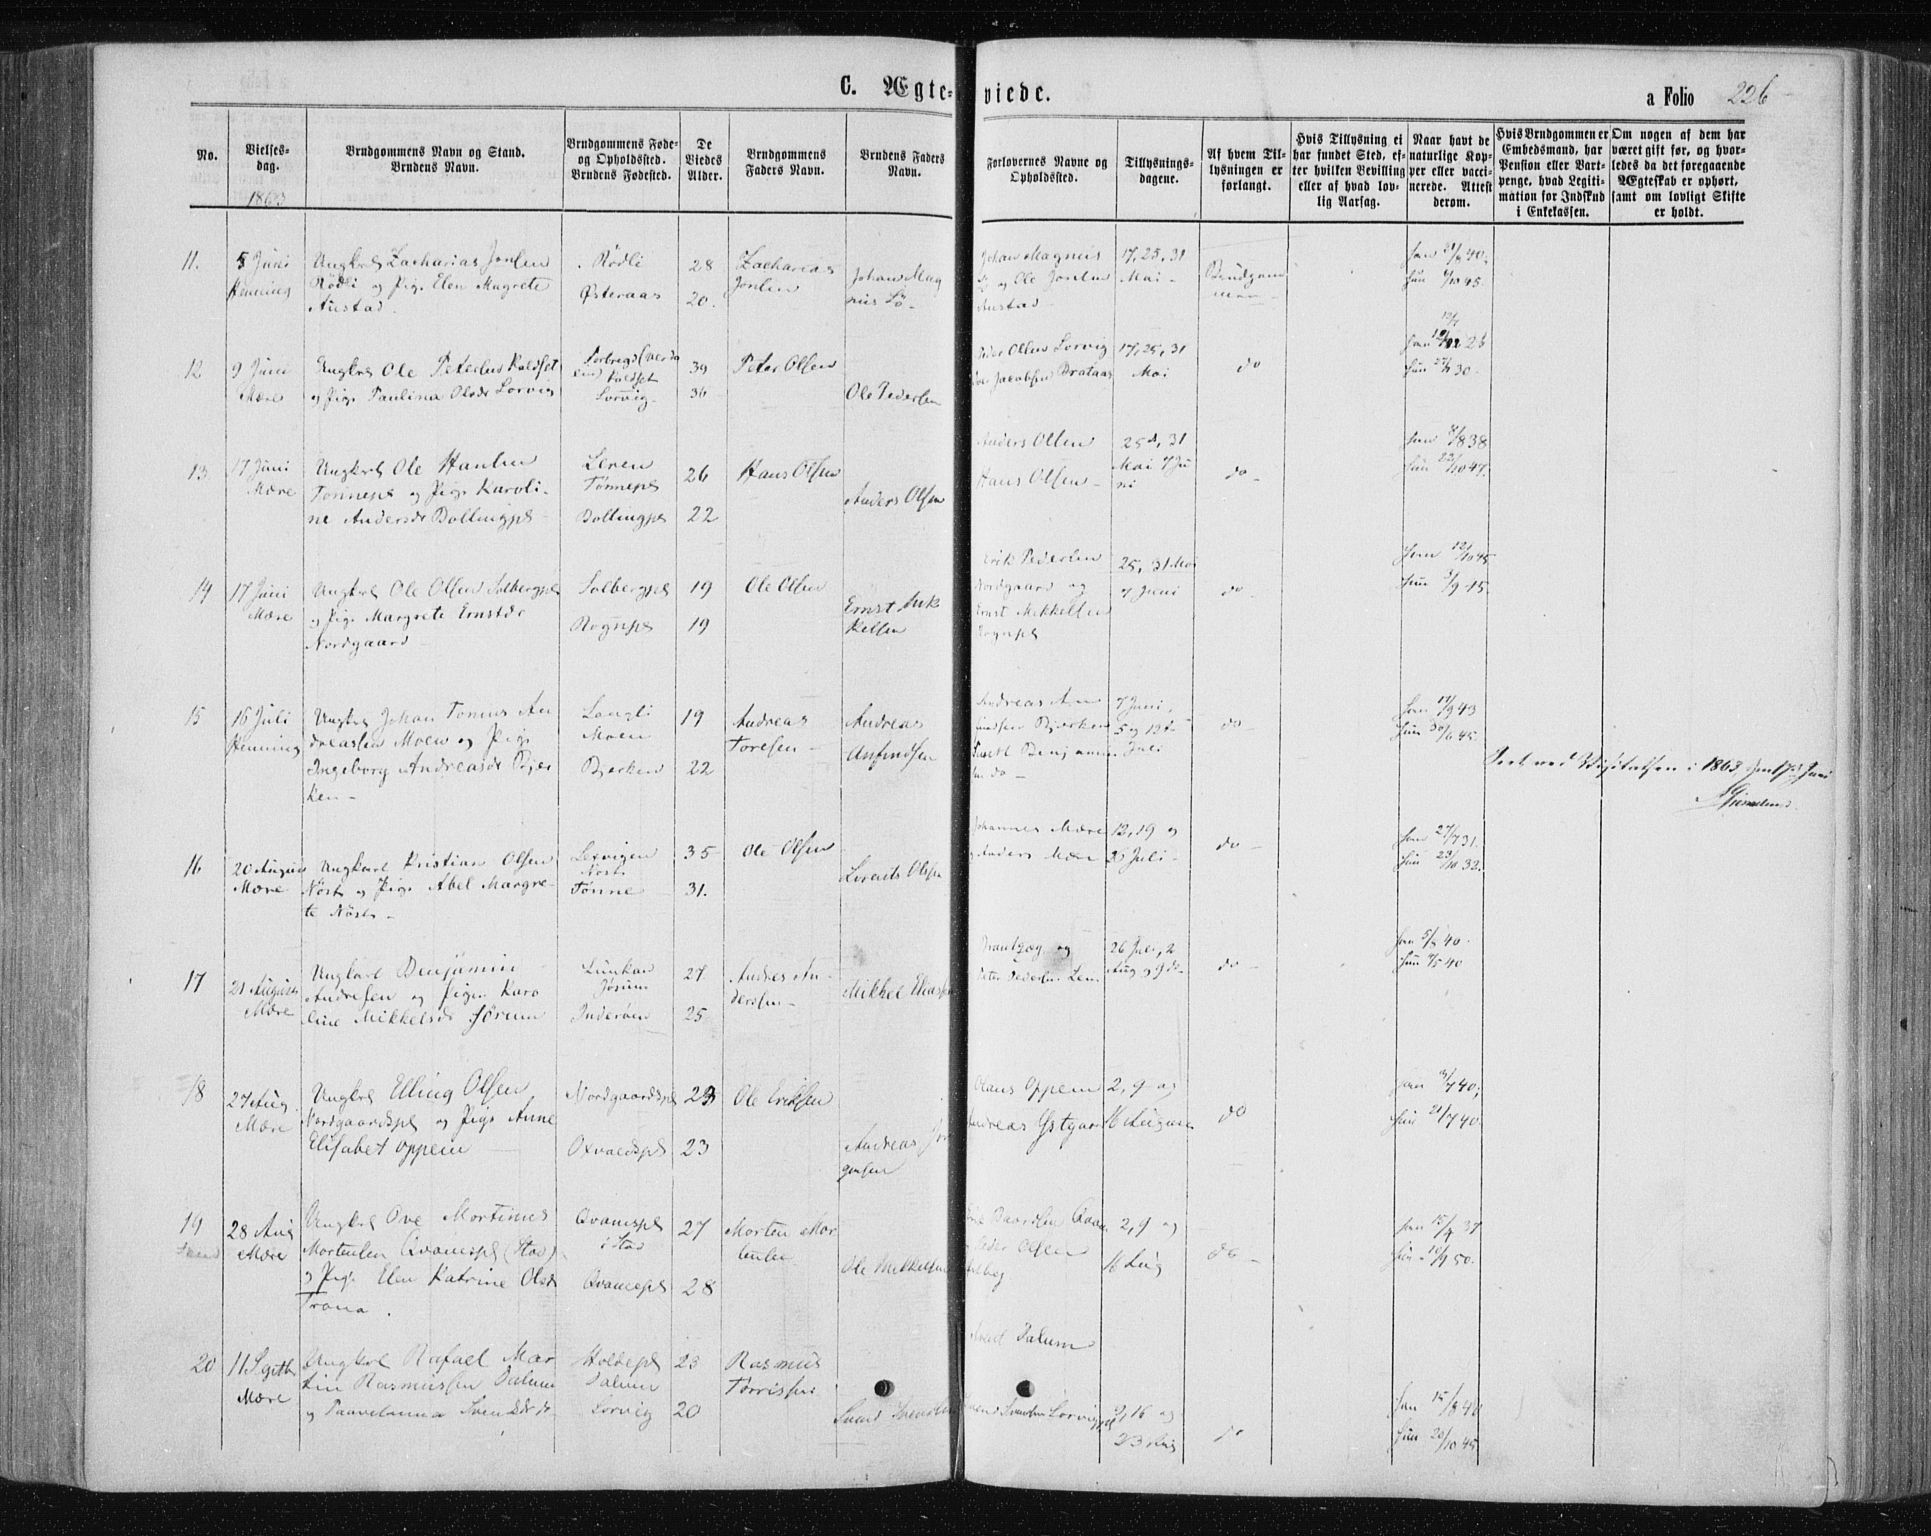 C. Ægte-viede.
a Folio 226
No.
Vielses-dag.
Brudgommens Navn og Stand. Brudens Navn.
Brudgommens Føde- og Opholdssted. Brudens Fødested.
De Viedes Alder.
Brudgommens Faders Navn.
Brudens Faders Navn.
Forlovernes Navne og Opholdssted.
Tillysnings-dagene.
Af hvem Til-lysningen er forlangt.
Hvis Tillysning ei har fundet Sted, ef-ter hvilken Bevilling eller af hvad lov-lig Aarsag.
Naar havt de naturlige Kop-per eller vacci-nerede. Attest derom.
Hvis Brudgommen er Embedsmand, har Pension eller Vart-penge, hvad Legiti-mation for Indskud i Enkekassen.
Om nogen af dem har været gift før, og hvor-ledes da det foregaaende Ægteskab er ophørt, samt om lovligt Skifte er holdt.
1863
11. 5 Juni Henning
Ungkrl Zacharias Jonsen
Rødli og Pige Elen Magrete
Austad.
Rødli
Østeraas
28
20.
Zacharias
Jonsen
Johan Mag
nus
Johan Magnus
og Ole Jonsen
Austad
17, 25, 31
Mai
Brudgom
men
han 21/8 40.
hun 6/10 45.
12 9 Juni Mære
Ungkrl Ole Petersen Koldset
og Pige Paulina Olsdr Lorvig
Koldset
Lorvig
39
36
Peter Olsen
Ole Pedersen
Peder Olsen Lorvig
Jacobsen Brataas
17, 25, 31
Mai
do
hun 27/7 30
13 17 Juni Mære
Ungkrl Ole Hansen
Tønnepl og Pige Karoli-
ne Andersdr Bøllingpl
Leren
Tønnepl
Bøllingpl
26
22
Hans Olsen
Anders Olsen
Anders Olsen
Hans Olsen
25d, 31
Mai 7 Ju
ni
do
han 7/8 38
hun 22/10 47.
14 17 Juni Mære
Ungkrl Ole Olsen Solbergpl
og Pige Margrete Ernstdr
Nordgaard
Solbergpl
Rognpl
19
19
Ole Olsen
Ernst Mik
kelsen
Erik Pedersen
Nordgaard og
Ernst Mikkelsen
Rognpl
25, 31 Mai
7 Juni
do
han 12/10 45
hun 9/9 45.
15 16 Juli Henning
Ungkrl Johan Tomas An
dreassen Moen og Pige
Ingeborg Andreasdr Bjer
ken
Langli
Moen
Bjerken
19
22
Andreas
Toresen
Andreas
Amfindsen
Andreas Am
findsen Bjerken
7 Juni,
5 og 12te
Juli
do
han 17/9 43
hun 30/6 45.
Seet ved Visitatsen i 1863 den 17de Juni
16 20 August Mære
Ungkarl Kristian Olsen
Nøst og Pige Abel Margre-
te Nøst
Lexvigen
Nøst
Tønne
35
31.
Ole Olsen
Lorents Olsen
Johannes Mære
og Anders Mære
12, 19 og
26 Juli
do
han 27/7 31.
hun 23/10 32.
17 21 August Mære
Ungkarl Benjamin
Andresen og Pige Karo
line Mikkelsdr Jørum
Lunkan
Jørum
Inderøen
27
25
Andres An-
dersen
Mikkel Eliasen
og
Peter Pedersen Lein
26 Juli, 2
Aug og 9 do
do
han 5/8 40.
hun 7/5 40
18 27 Aug. Mære
Ungkrl Elling Olsen
Nordgaardspl og Pige Anne
Elisabet Oppem
Nordgaardspl
Oxvaldspl
23
23
Ole Eriksen
Andreas Jør
gensen
Olaus Oppem
Andreas Ystgaar
2, 9 og
16 August
do
han 3/7 40;
hun 21/7 40.
19 28 Aug Mære
Ungkrl Ove Mortinus
Mortensen Qvamspl (Stod)
og Pige Elen Katrine Olsdr
Trana.
Qvamspl
i Stod
Qvamspl
27
28
Morten Mor
tensen
Ole Mikkelsen
Baardsen Qvam
og Peder Olsen
2, 9 og
16 Aug
do
han 15/4 37
hun 10/9 50.
20 11 Septb Mære
Ungkrl Rafael Mar
tin Rasmussen Dalum
og Paavelanna Svendsdr do
Holdepl
Dalum
Lorvig
23
20
Rasmus
Tørrisen
Svend Svendsen
Dalum
Svend Svendsen Lorvigpl
9, 16 og
23 Aug
do
han 15/8 40
hun 20/10 45.